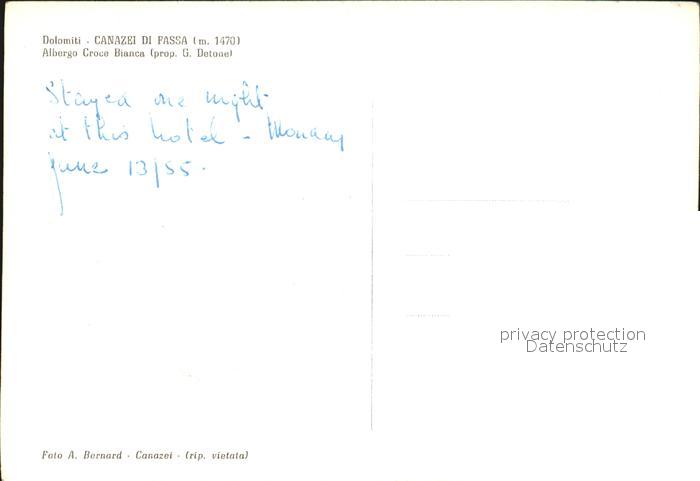 Dolomiti - CANAZEI DI FASSA (m. 1470)
Albergo Croce Bianca (prop. G. Detone)
Stayed one night
at this hotel - Monday
June 13/55.
privacy protection
Datenschutz
Foto A. Bernard - Canazei - (rip. vietata)